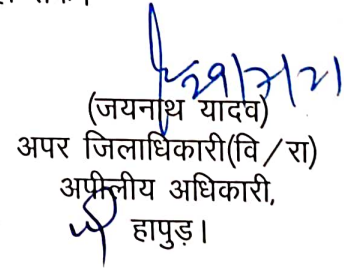 29/7/21
(जयनाथ यादव)
अपर जिलाधिकारी(वि/रा)
अपीलीय अधिकारी,
हापुड़।